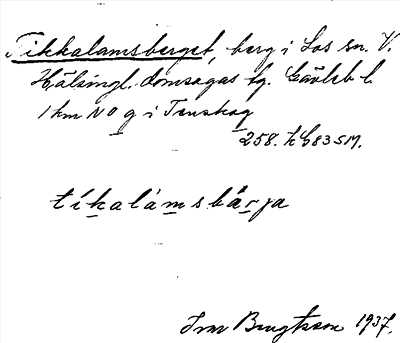 Tikkalamsberget, berg i Los sn. V.
Hälsingl. domsagas tg. Gävleb. l.
1 km NO g i Tenskog
258. h C83 SM.
tíkalámsbärja
Ivar Bengtsson 1937.